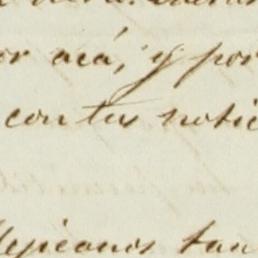 or acá, y por
con tus notic
Mejicanos tan